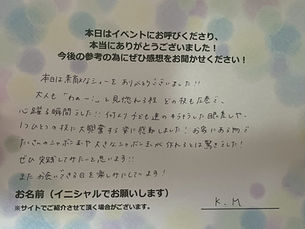 本日はイベントにお呼びくださり、
本当にありがとうございました！
今後の参考の為にぜひ感想をお聞かせください！
本日は素敵なショーをありがとうございました!!
大人も「わぁー!」と見惚れる程 どの技も圧巻で、
心躍る瞬間でした!! 何より子ども達のキラキラした眼差しや、
1つひとつの技に大歓声する姿に感動しました! お家にある物で
たくさんのシャボン玉や大きなシャボン玉が作れるとは驚きでした!
ぜひ実践してみたいと思います!!
またお会いできる日を楽しみにしています!
お名前（イニシャルでお願いします）
※サイトでご紹介させて頂く場合がございます。
K.M